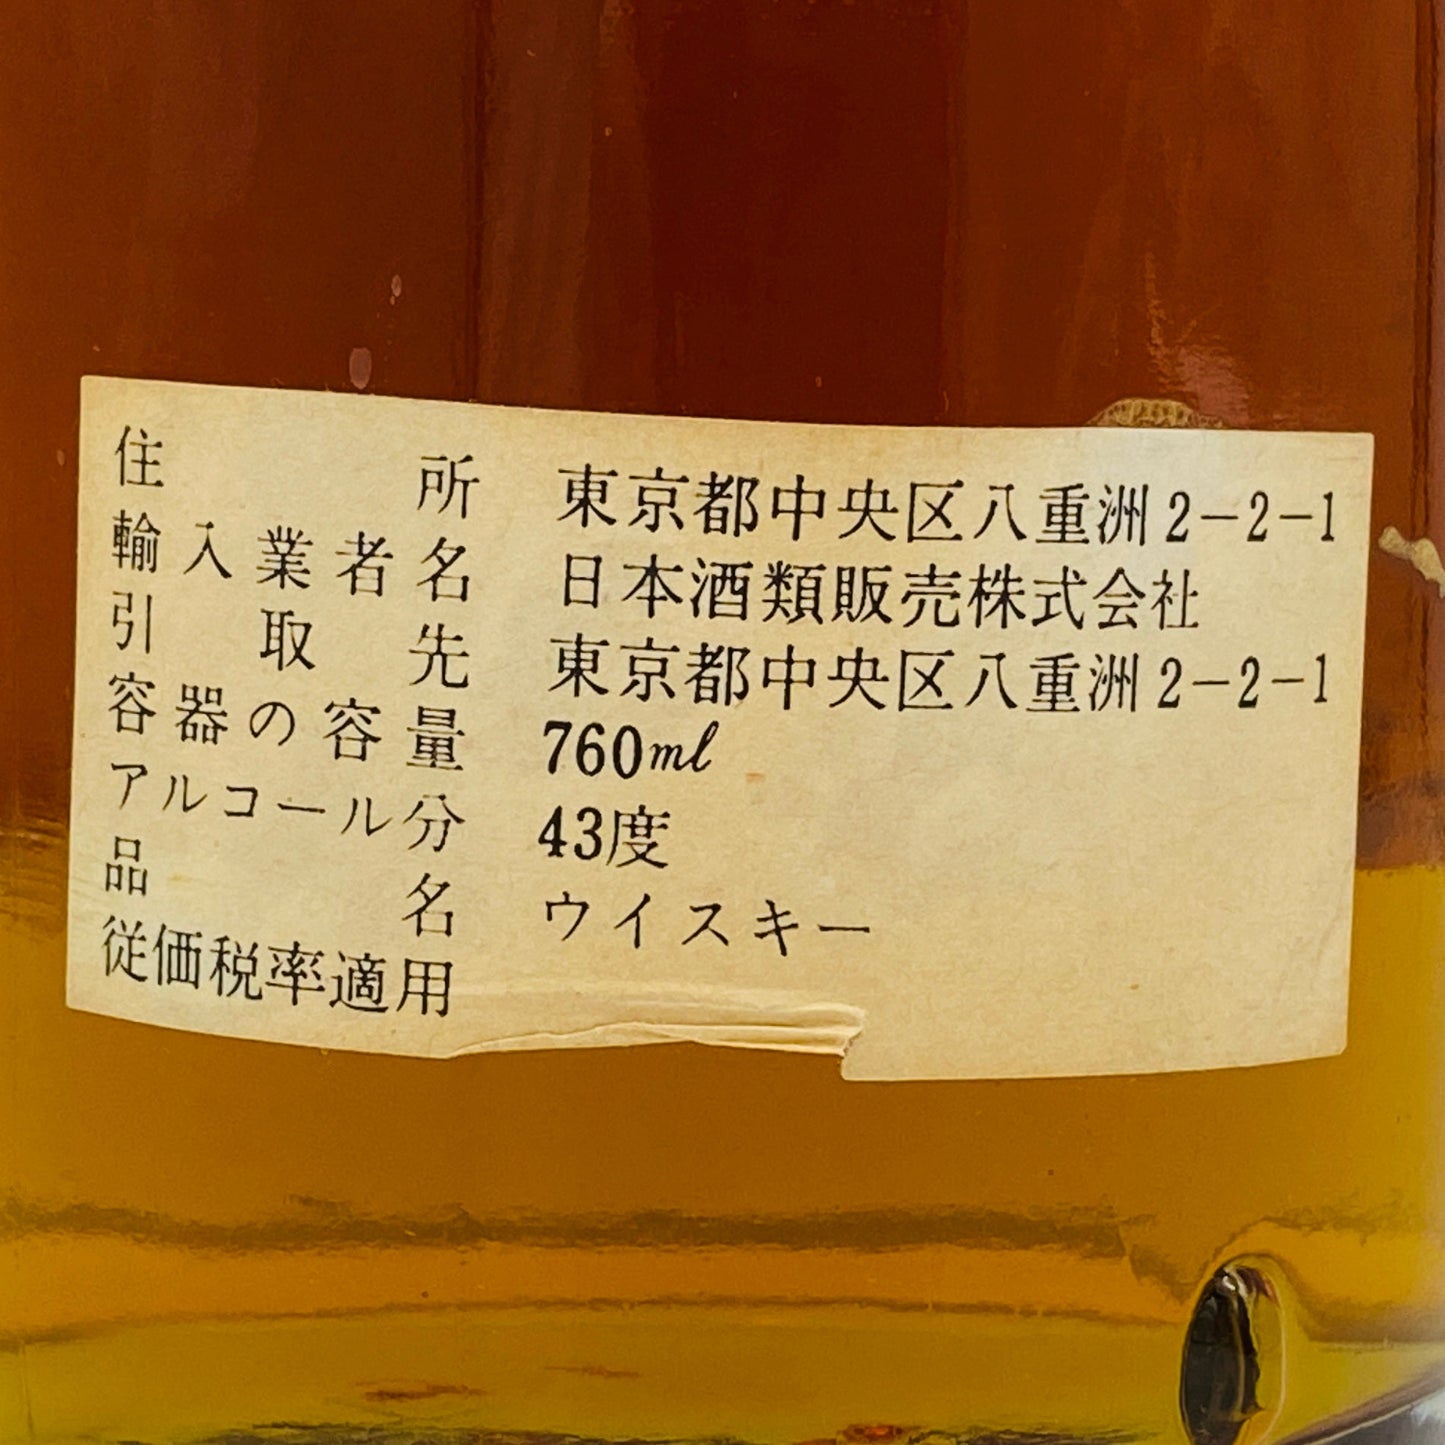 住所 東京都中央区八重洲2-2-1
輸入業者名 日本酒類販売株式会社
引取先 東京都中央区八重洲2-2-1
容器の容量 760ml
アルコール分 43度
品名 ウイスキー
従価税率適用